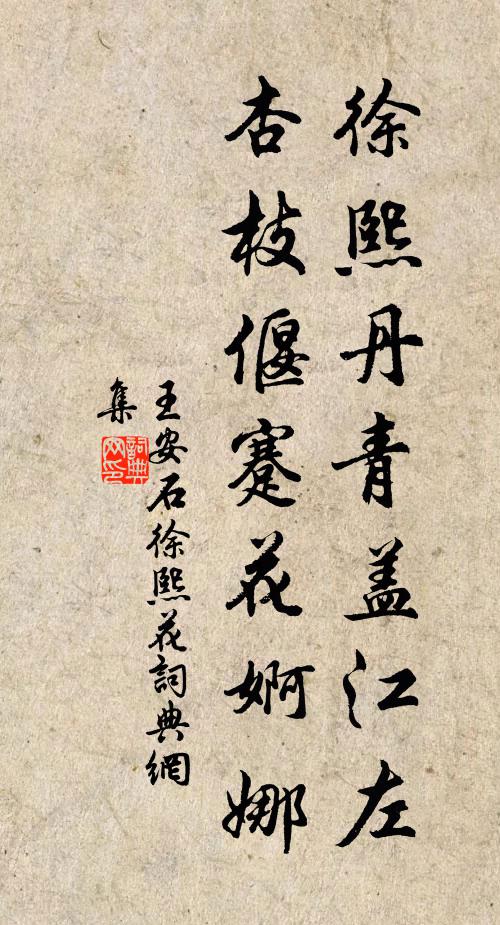 徐熙丹青盖江左
杏枝偃蹇花婀娜
王安石徐熙花詞典網
集
詞典网印